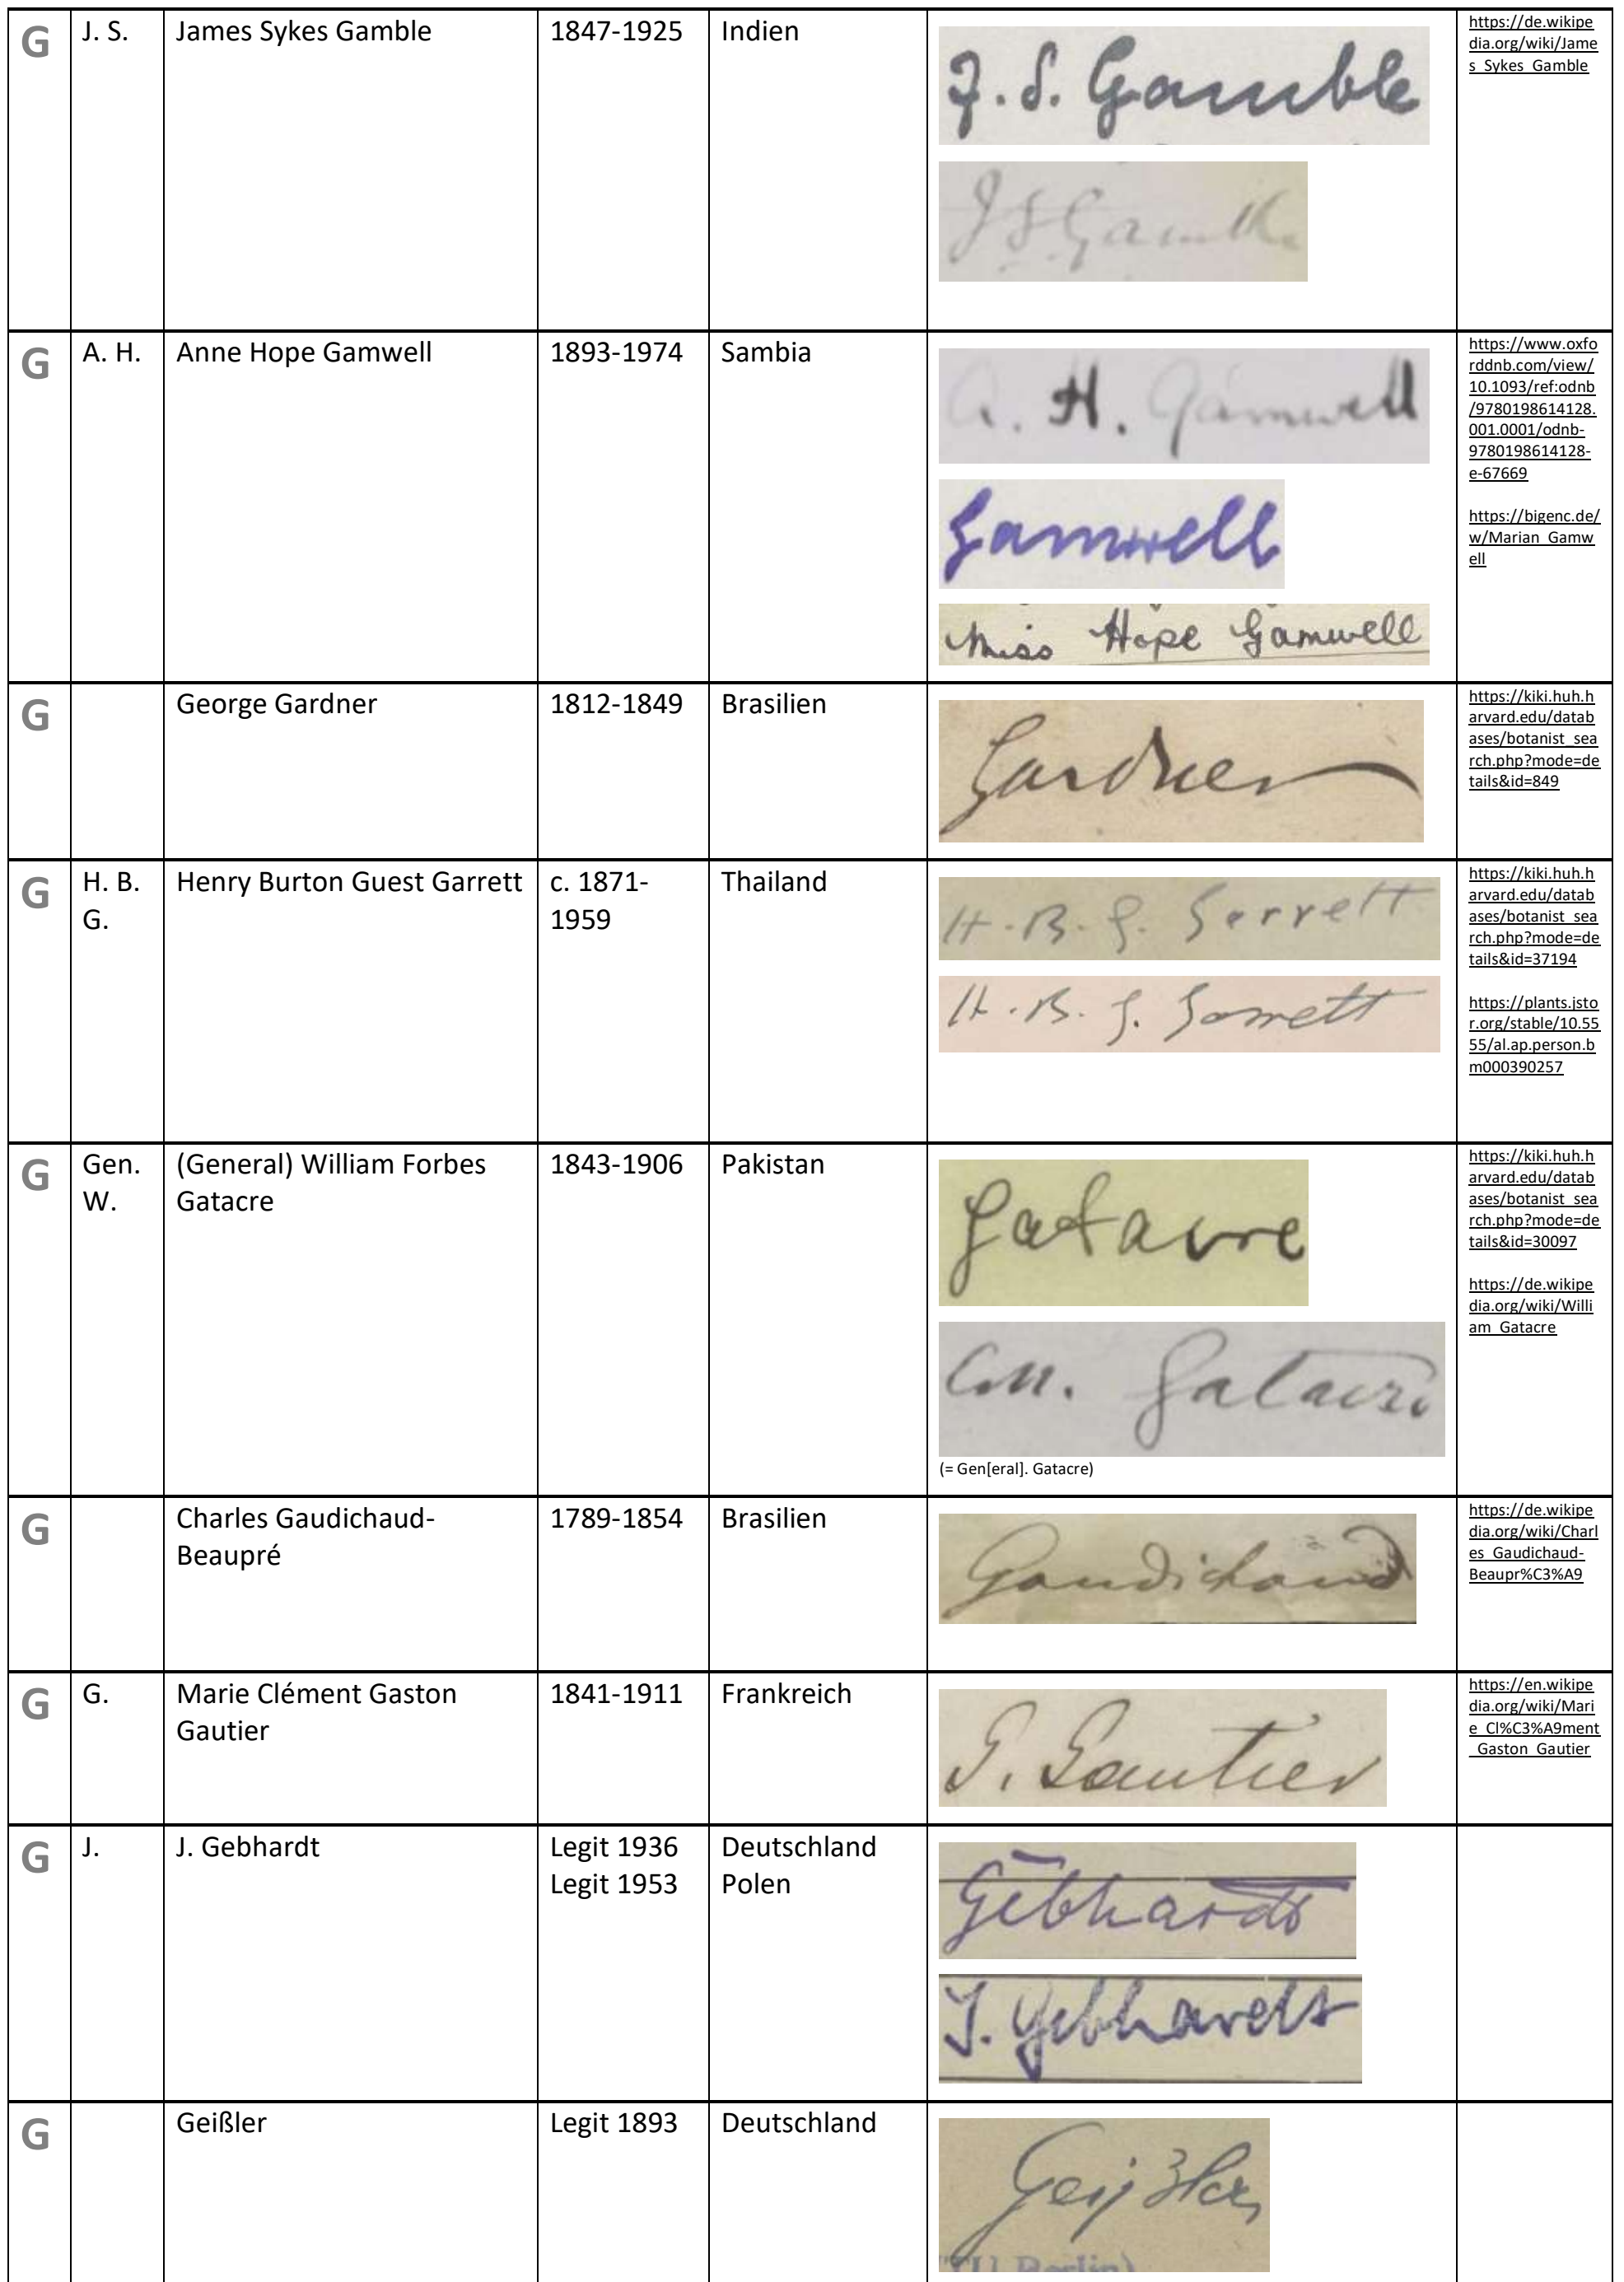 G
J. S.
James Sykes Gamble
1847-1925
Indien
J. S. Gamble
J S Gamble
https://de.wikipe
dia.org/wiki/Jame
s_Sykes_Gamble
G
A. H.
Anne Hope Gamwell
1893-1974
Sambia
A. H. Gamwell
Gamwell
Miss Hope Gamwell
https://www.oxfo
rddnb.com/view/
10.1093/ref:odnb
/9780198614128.
001.0001/odnb-
9780198614128-
e-67669
https://bigenc.de/
w/Marian_Gamw
ell
G
George Gardner
1812-1849
Brasilien
Gardner
https://kiki.huh.h
arvard.edu/datab
ases/botanist_sea
rch.php?mode=de
tails&id=849
G
H. B.
G.
Henry Burton Guest Garrett
c. 1871-
1959
Thailand
H. B. G. Garrett
H. B. G. Garrett
https://kiki.huh.h
arvard.edu/datab
ases/botanist_sea
rch.php?mode=de
tails&id=37194
https://plants.jsto
r.org/stable/10.55
55/al.ap.person.b
m000390257
G
Gen.
W.
(General) William Forbes
Gatacre
1843-1906
Pakistan
Gatacre
Gen. Gatacre
(= Gen[eral]. Gatacre)
https://kiki.huh.h
arvard.edu/datab
ases/botanist_sea
rch.php?mode=de
tails&id=30097
https://de.wikipe
dia.org/wiki/Willi
am_Gatacre
G
Charles Gaudichaud-
Beaupré
1789-1854
Brasilien
Gaudichaud
https://de.wikipe
dia.org/wiki/Charl
es_Gaudichaud-
Beaupr%C3%A9
G
G.
Marie Clément Gaston
Gautier
1841-1911
Frankreich
G. Gautier
https://en.wikipe
dia.org/wiki/Mari
e_Cl%C3%A9ment
_Gaston_Gautier
G
J.
J. Gebhardt
Legit 1936
Legit 1953
Deutschland
Polen
Gebhardt
J. Gebhardt
G
Geißler
Legit 1893
Deutschland
Geißler
TU Berlin)